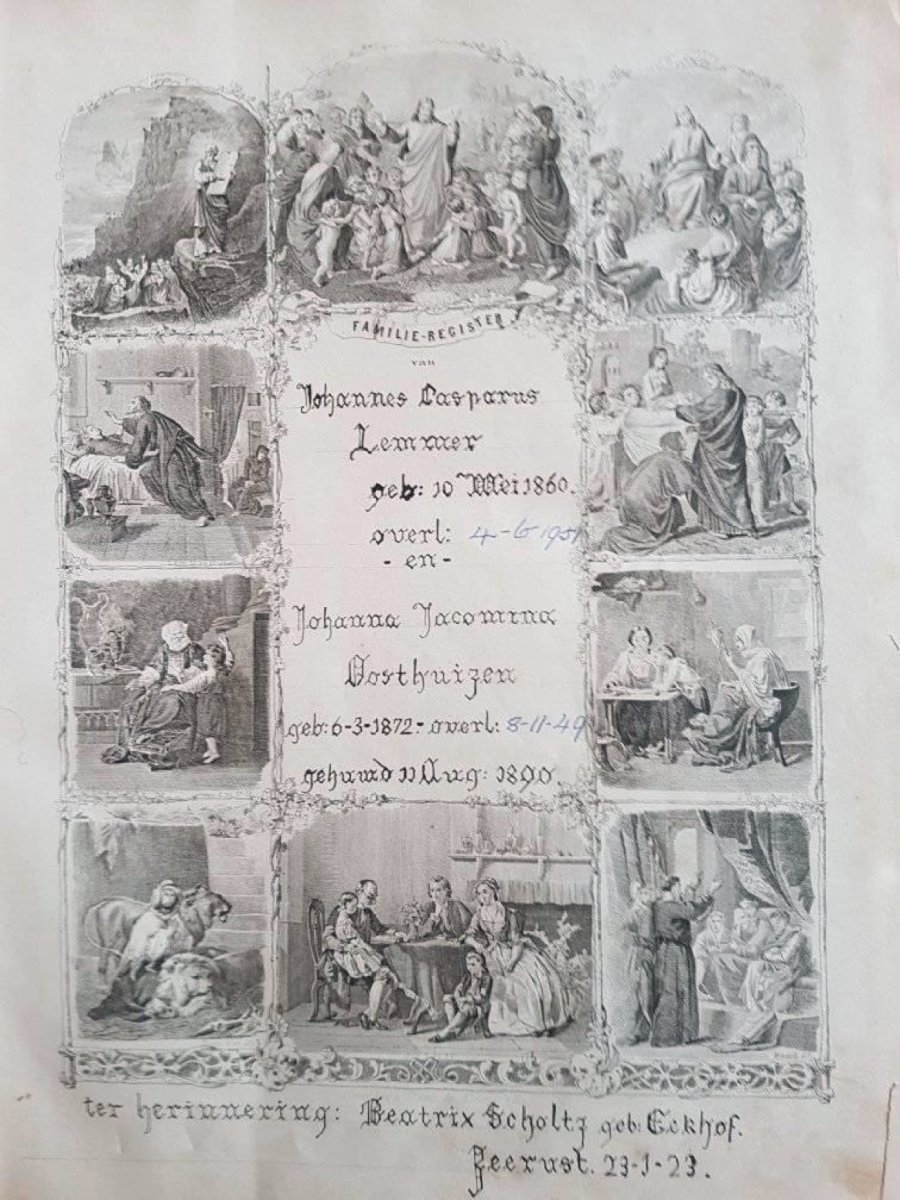 FAMILIE-REGISTER
van
Johannes Casparus
Lemmer
geb: 10 Mei 1860.
overl: 4-6-1951
- en -
Johanna Jacomina
Oosthuizen
geb: 6-3-1872 - overl: 8-11-49
gehuwd 11 Aug: 1890.
ter herinnering: Beatrix Scholtz geb: Eckhof.
Zeerust. 23-1-23.